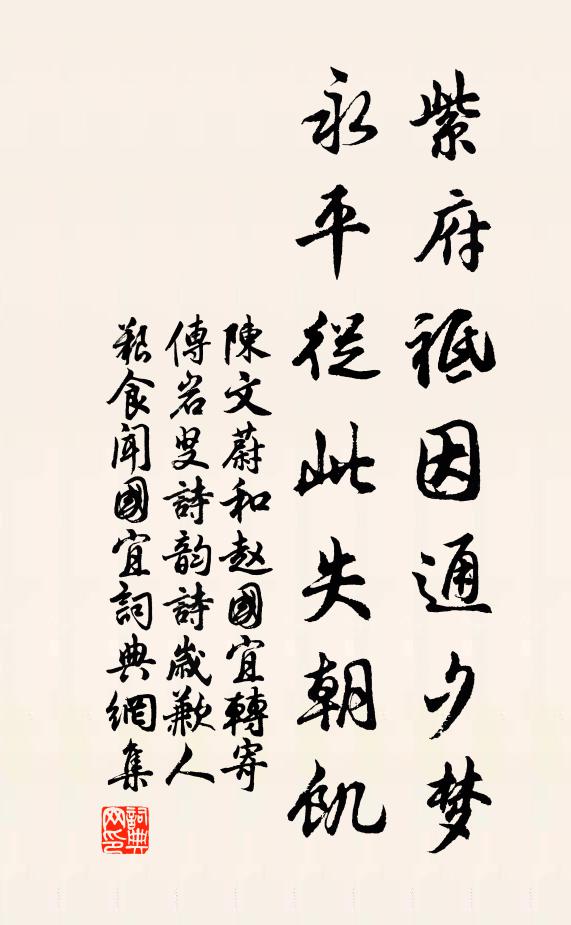 紫府祗因通夕梦
永平從此失朝飢
陳文蔚和赵國宜轉寄
傅岩叟詩韵詩歲歉人
艱食聞國宜詞典網集
詞典
网印